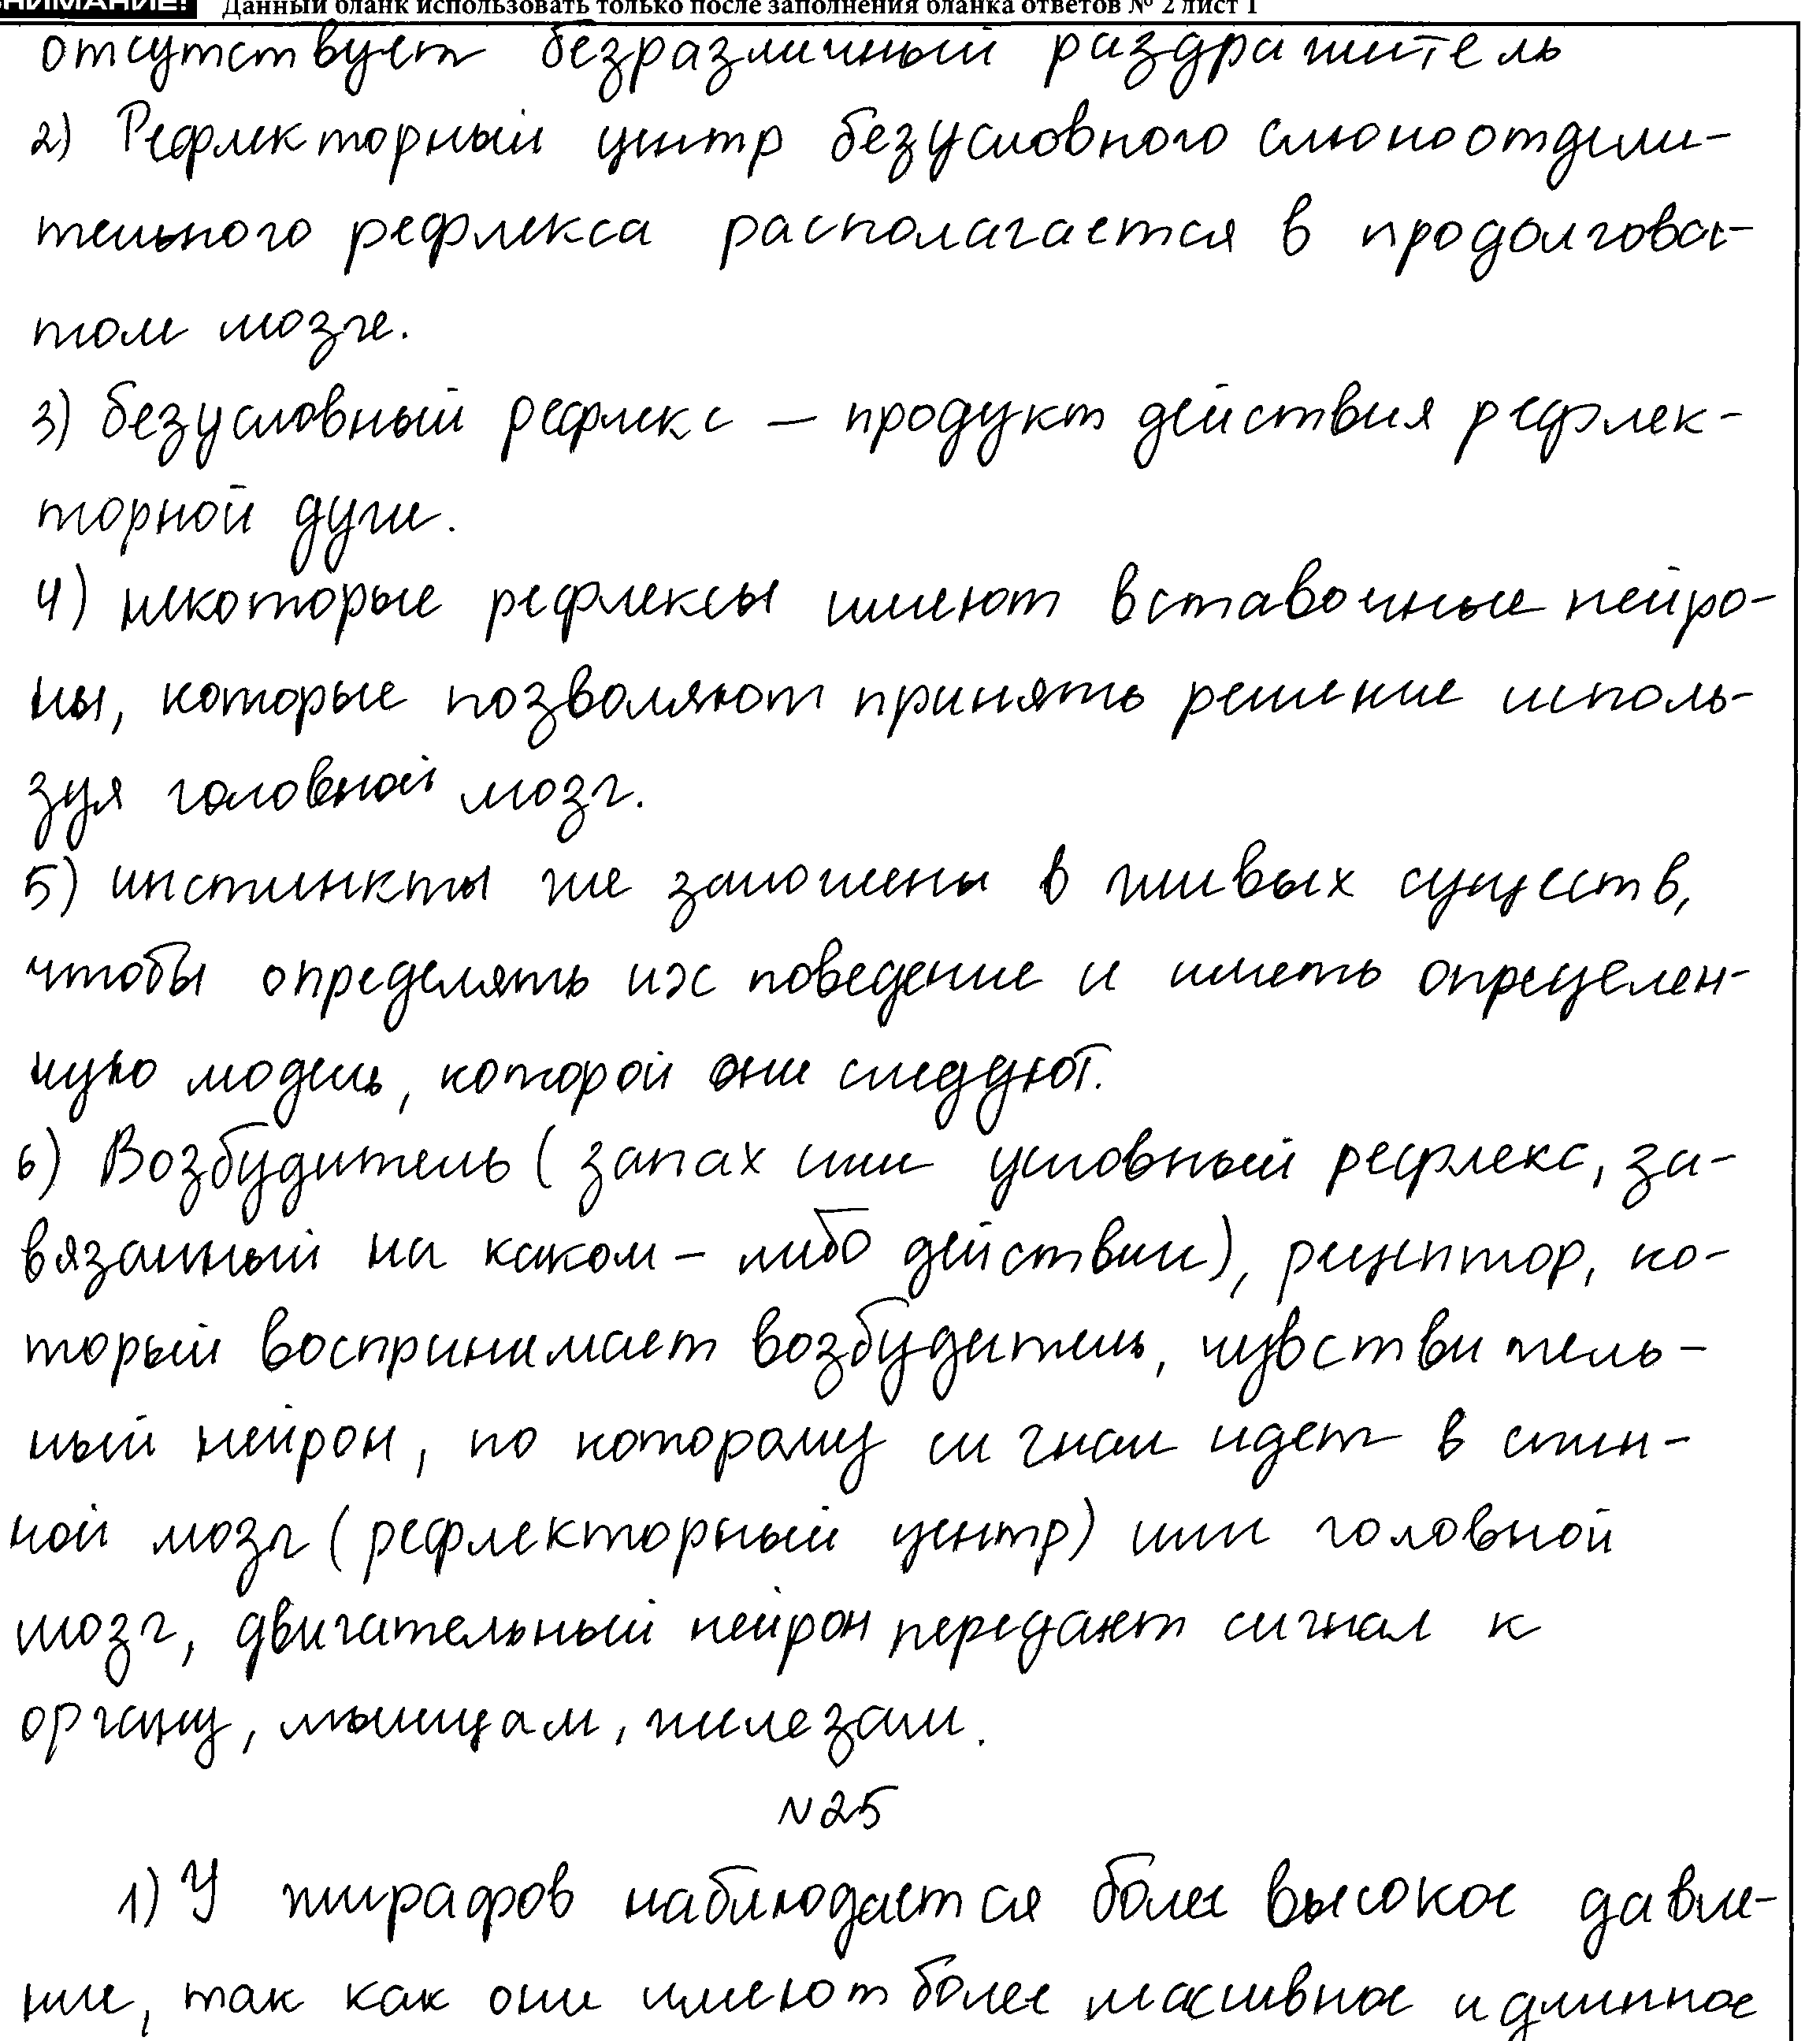 ВНИМАНИЕ! Данный бланк использовать только после заполнения бланка ответов № 2 лист 1
отсутствует безразличный раздражитель
2) Рефлекторный центр безусловного слюноотдели-
тельного рефлекса располагается в продолгова-
том мозге.
3) безусловный рефлекс – продукт действия рефлек-
торной дуги.
4) некоторые рефлексы имеют вставочные нейро-
ны, которые позволяют принять решение исполь-
зуя головной мозг.
5) инстинкты же заложены в живых существ,
чтобы определять их поведение и иметь определен-
ную модель, которой они следуют.
6) Возбудитель (запах или условный рефлекс, за-
вязанный на каком-либо действии), рецептор, ко-
торый воспринимает возбудитель, чувствитель-
ный нейрон, по которому сигнал идет в спин-
ной мозг (рефлекторный центр) или головной
мозг, двигательный нейрон передают сигнал к
органу, мышцам, железам.
N25
1) У жирафов наблюдается более высокое давле-
ние, так как они имеют более массивное и длинное